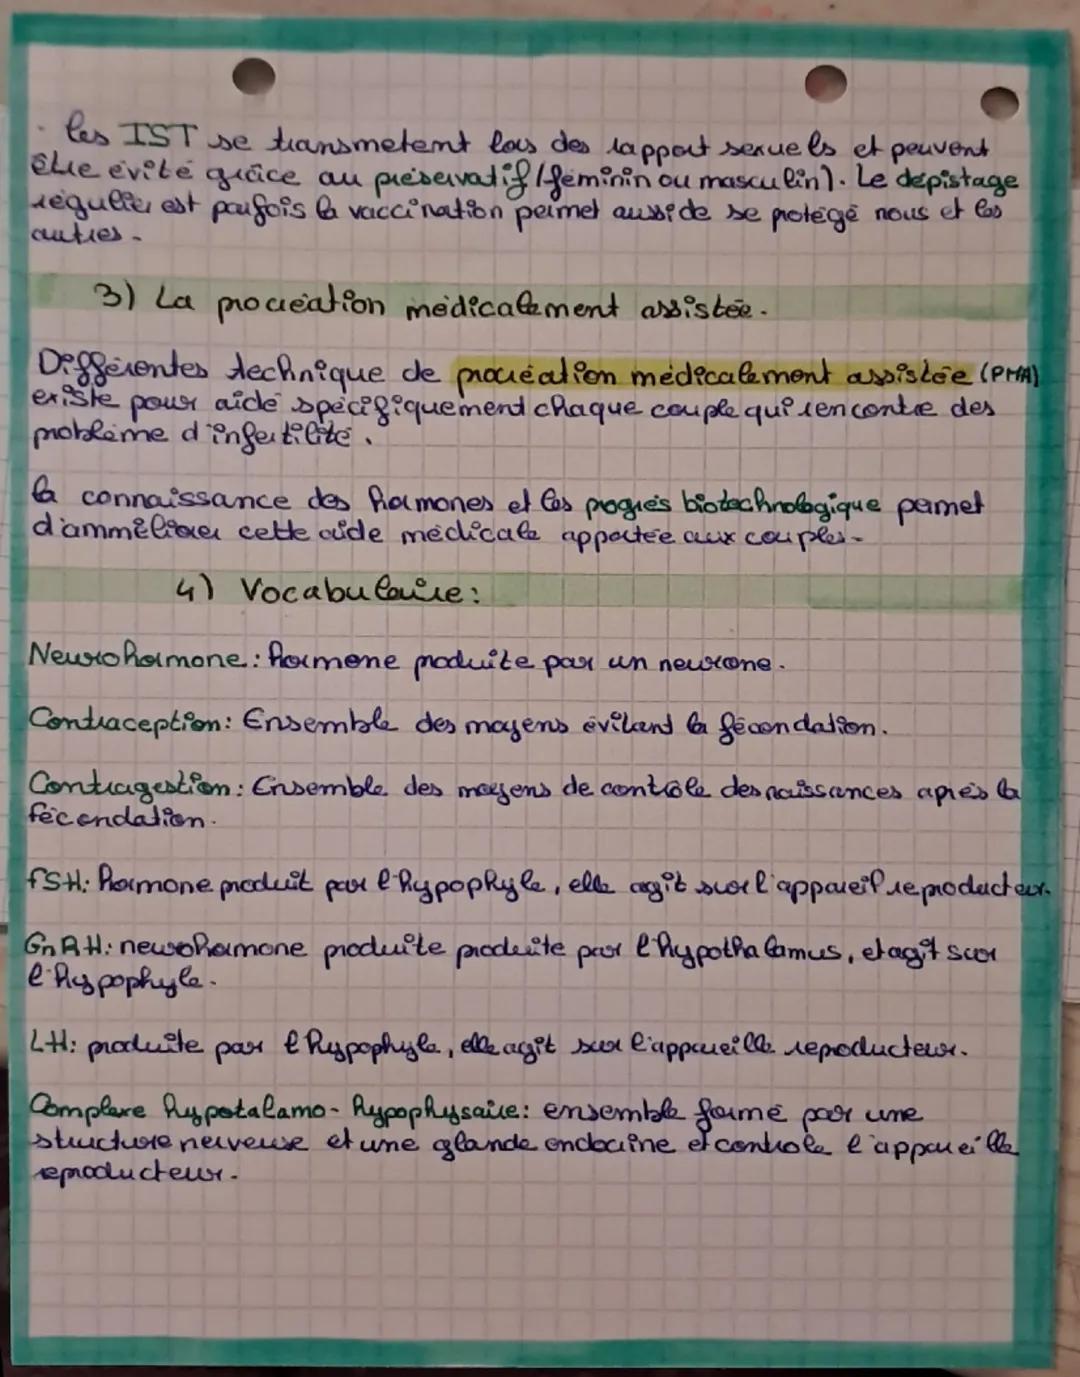 · les IST se transmetent lors des rapport sexuels et peuvent
être évité grâce au préservatif (féminin ou masculin). Le dépistage
régulier est parfois la vaccination permet aussi de se protégé nous et les
autres.
3) La procréation médicalement assistée.
Différentes technique de procréation médicalement assistée (PMA)
existe pour aidé spécifiquement chaque couple qui rencontre des
problème d'infertilité.
la connaissance des hormones et les progrés biotechnologique permet
d'ammêliorer cette aide médicale apportée aux couples.
4) Vocabulaire:
Neurohormone: hormone produite par un neurone.
Contraception: Ensemble des moyens évitant la fécondation.
Contragestion: Ensemble des moyens de contrôle des naissances aprés la
fécondation.
FSH: Hormone produit par l'hypophyle, elle agit sur l'appareil reproducteur.
GnRH: neurohormone produite produite par l'hypothalamus, et agit sur
l'hypophyle.
LH: produite par l'hypophyle, elle agit sur l'appareille reproducteur.
Complexe hypotalamo-hypophysaire: ensemble formé par une
structure nerveuse et une glande endocrine et controle l'appareille
reproducteur.